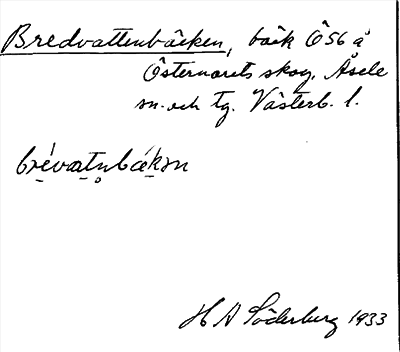 Bredvattenbäcken, bäck Ö56 å
Östernorets skog, Åsele
sn. och tg. Västerb. l.
brévatn̥bækən
H A Söderberg 1933